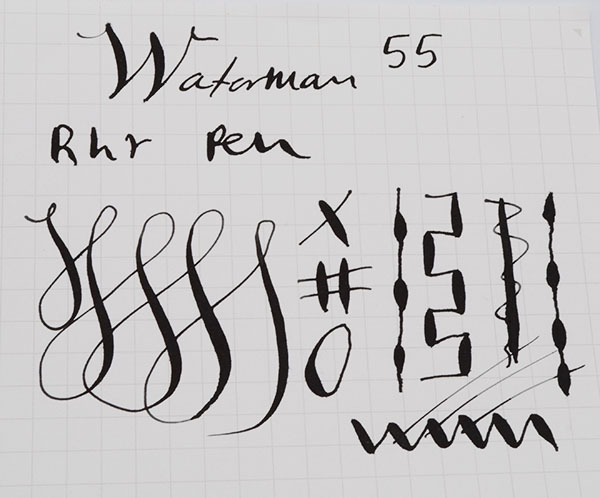 Waterman 55
Rhr Pen
X
#
O